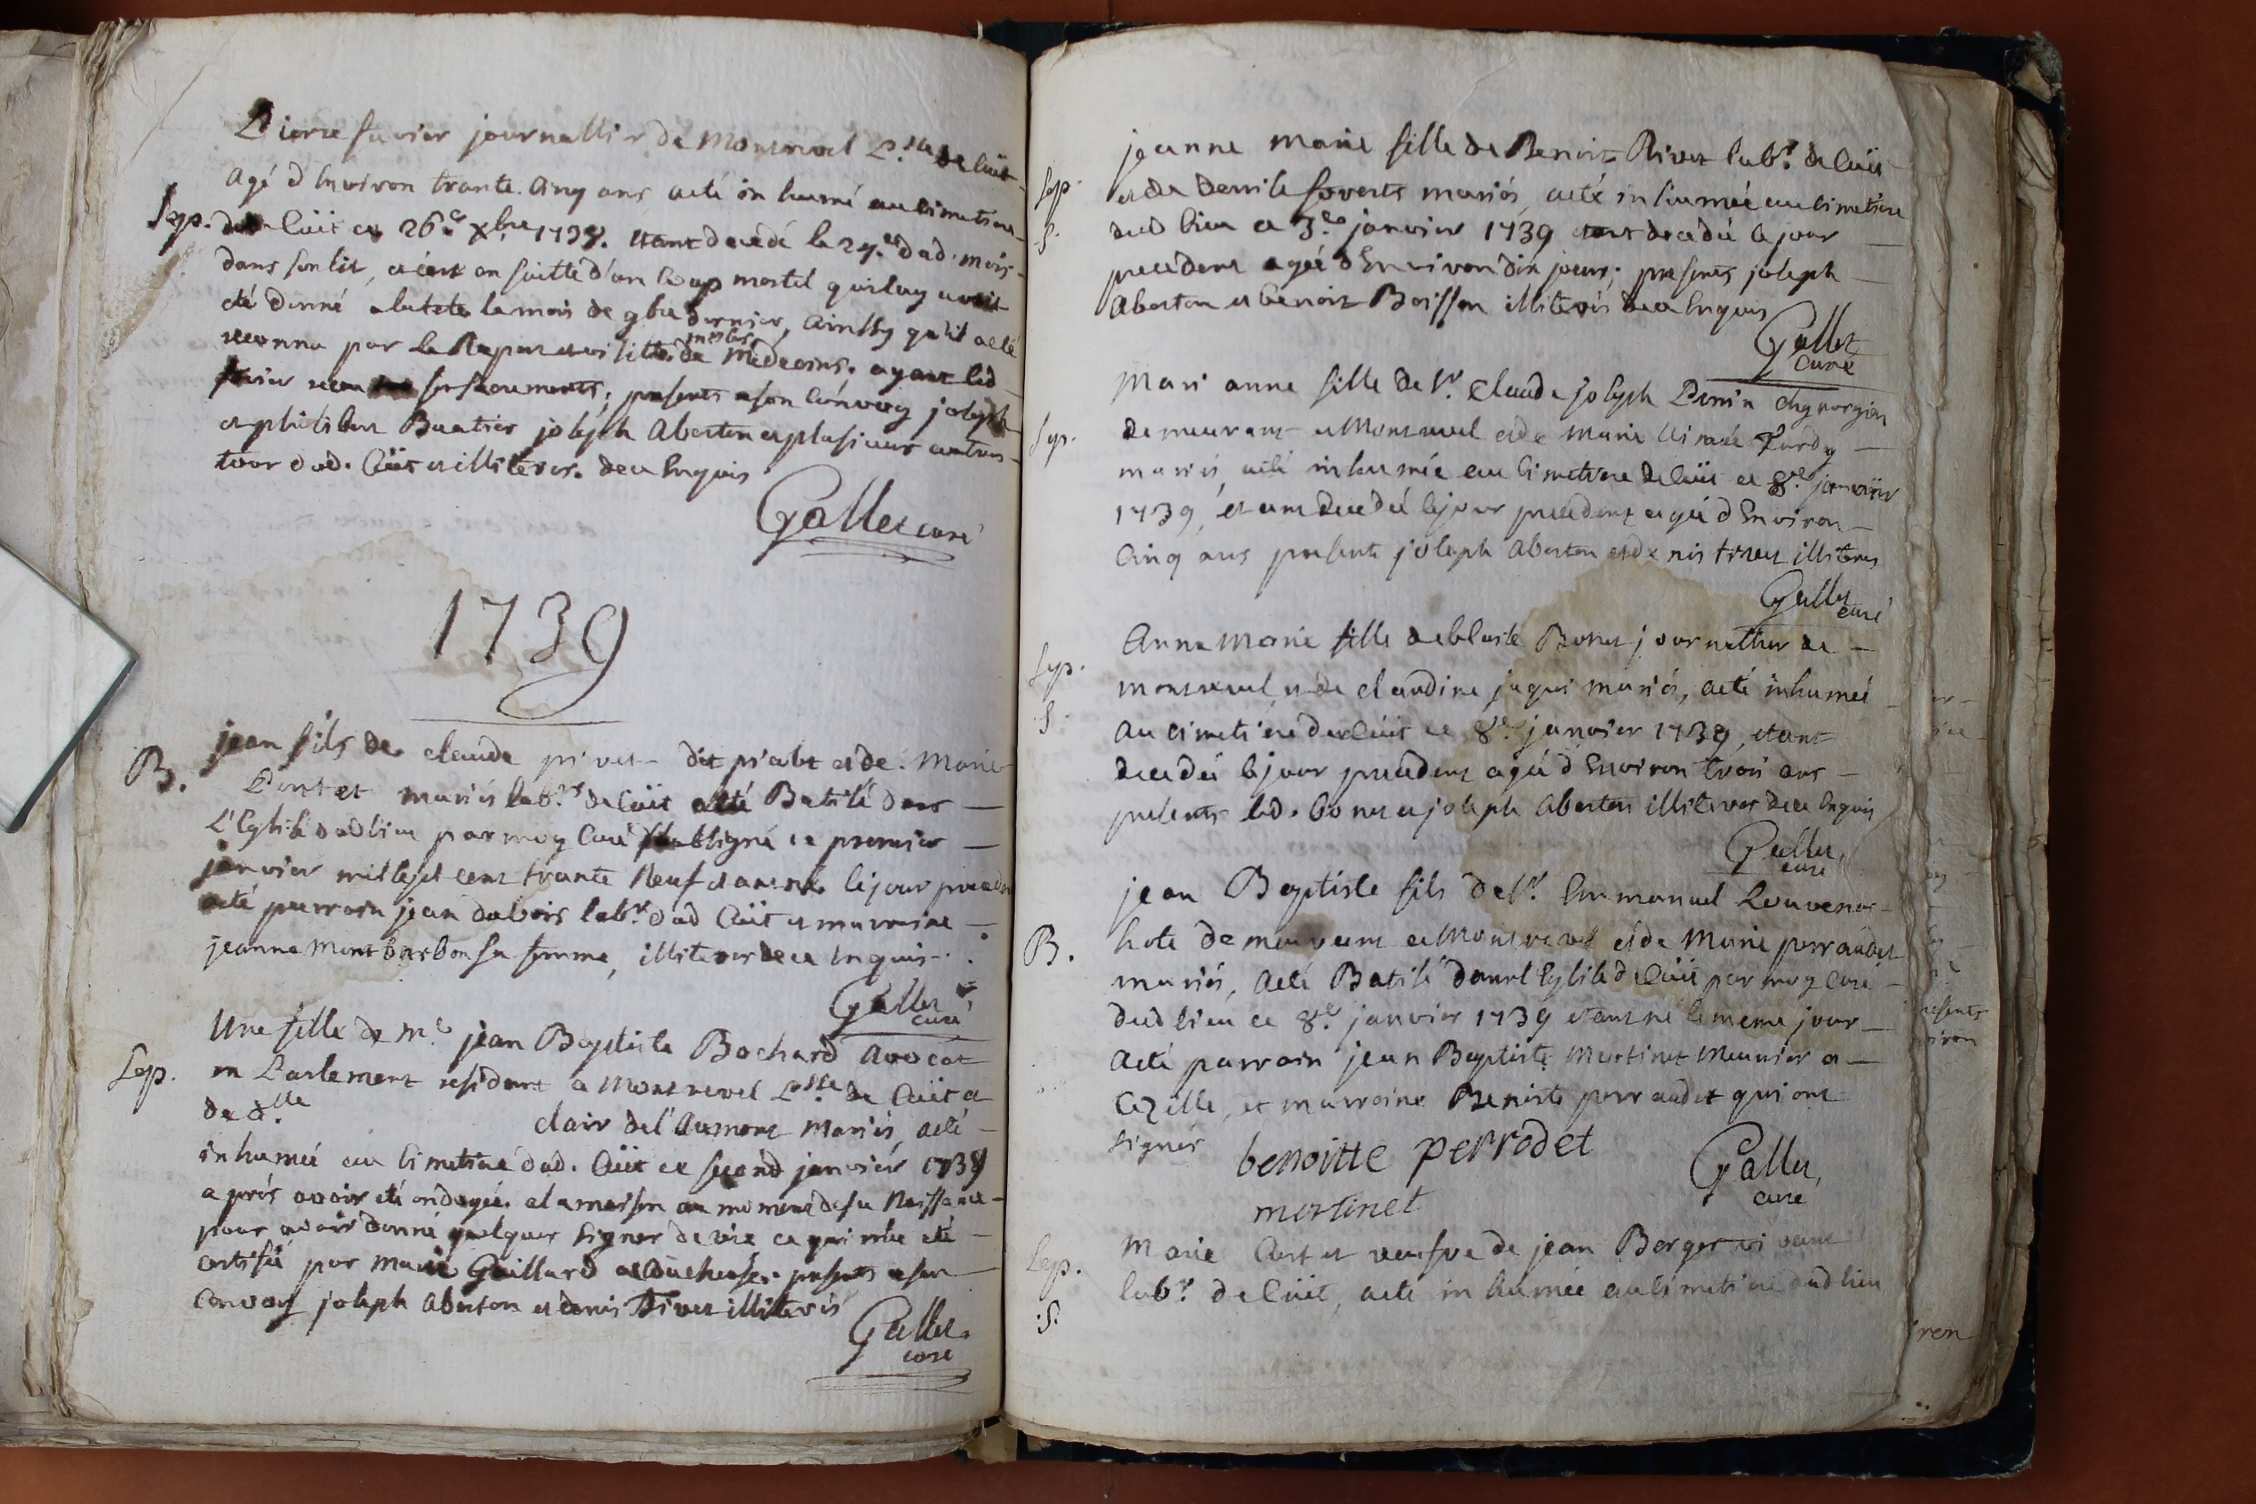 Pierre favier journallier de Montrevel P.sse de Cuit
agé d Environ trante Cinq ans aeté in humé au cimetiere
Sep. de Cuit ce 26.e xbre 1738. etant decedé le 24.e dud. mois
dans son lit, et c'est en suitte d'un Coup mortel qui luy avoit
eté donné a la tete le mois de 9bre dernier, Ainssy qu'il aeté
reconnu par le Raport et visitte de Medecins. ayant led
favier receu ses sacrements, presents a son Convoy joseph
et philibert Buatier joseph Aberton et plusieurs autres
tous dud. Cuit et illiteres. de ce Enquis
Gallet curé
1739
B. jean fils de claude pivet dit piabt et de Marie
mariés lab.rs de Cuit aeté Batisé dans
L'Eglise dud lieu par moy Curé soubsigné ce premier
janvier mille sept cent trante Neuf etant né le jour preced
aeté parrain jean dubois lab.r dud Cuit et marraine
jeanne Montbarbon sa femme, illiteres de ce Enquis
Gallet
curé
Une fille de M.e jean Baptiste Bochard Avocat
Sep. en Parlement residant a Montrevel P.sse de Cuit et
de d.lle clair del'Aumont Mariés, aeté
inhumée au Cimetiere dud. Cuit ce second janvier 1739
aprés avoir eté ondoyée a la maison au moment de sa Naissance
pour avoir donné quelques Signes de vie ce qui m'a eté
certifié par Marie Gaillard accoucheuse. presents a son
Convoy joseph Aberton et denis Tivet illiterés
Gallet
curé
jeanne Marie fille de Benoit Rivet lab.r de Cuit
Sep. et de Denise foverts mariés, aeté in humée au cimetiere
S. dud lieu ce 3.e janvier 1739 etant decedée le jour
precedent agée d Environ dix jours; presents joseph
Aberton et benoit Boisson illiterés de ce Enquis
Gallet
curé
Mari anne fille de S.r Claude joseph Penin Chyrorgien
Sep. demeurant a Montrevel et de Marie Aimée Purdy
mariés, aeté inhumée au Cimetiere de Cuit ce 8.e janvier
1739, etant decedée le jour precedent agée d Environ
Cinq ans presents joseph Aberton et denis tivet illiteres
Gallet
curé
Anne Marie fille de blaise Bonet journallier de
Sep. montrevel, et de claudine jaqui mariés, aeté inhumée
S. au cimetiere de Cuit ce 8.e janvier 1739, etant
decedée le jour precedent agée d Environ trois ans
presents led. bonet et joseph Aberton illiteres de ce Enquis
Gallet
curé
jean Baptiste fils de S.r Emmanuel Louvenor
B. hote demeurant a Montrevel et de Marie perraudet
mariés, aeté Batisé dans l'Eglise de Cuit par moy Curé
dud lieu ce 8.e janvier 1739 etant né le meme jour
aeté parrain jean Baptiste Martinet Meunier a
Cezille, et marraine Benoiste perraudet qui ont
signés
benoitte perrodet
martinet
Gallet
curé
Sep. Marie Curt et veufve de jean Berger vivant
S. lab.r de Cuit, aeté in humée au Cimetiere dud lieu